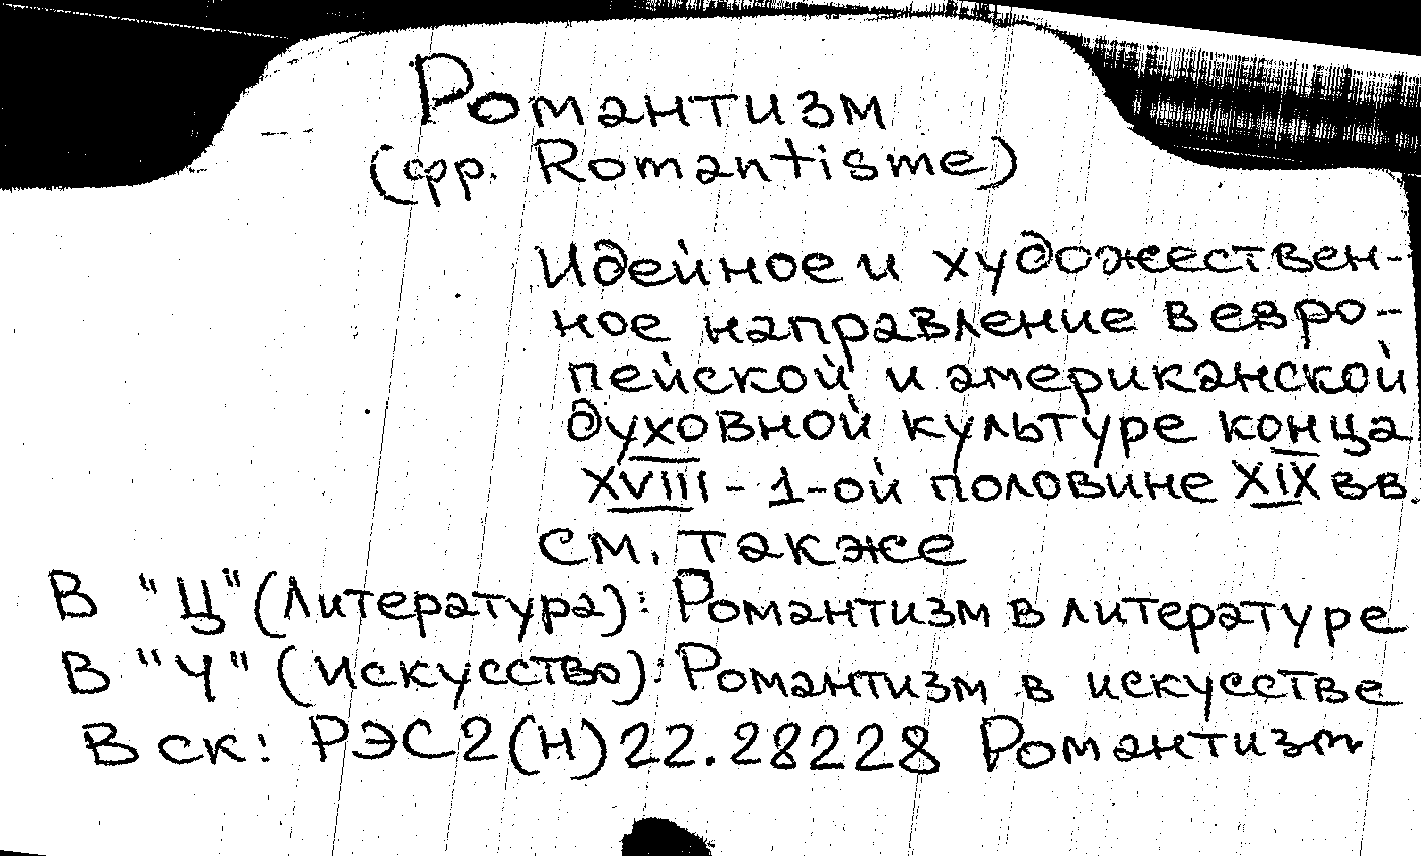 Романтизм
(фр. Romantisme)
Идейное и художествен-
ное направление в евро-
пейской и американской
духовной культуре конца
XVIII - 1-ой половине XIX вв.
см. также
В "Ц" (Литература): Романтизм в литературе
В "Ч" (искусство): Романтизм в искусстве
В ск: РЭС2(Н)22.28228 Романтизм